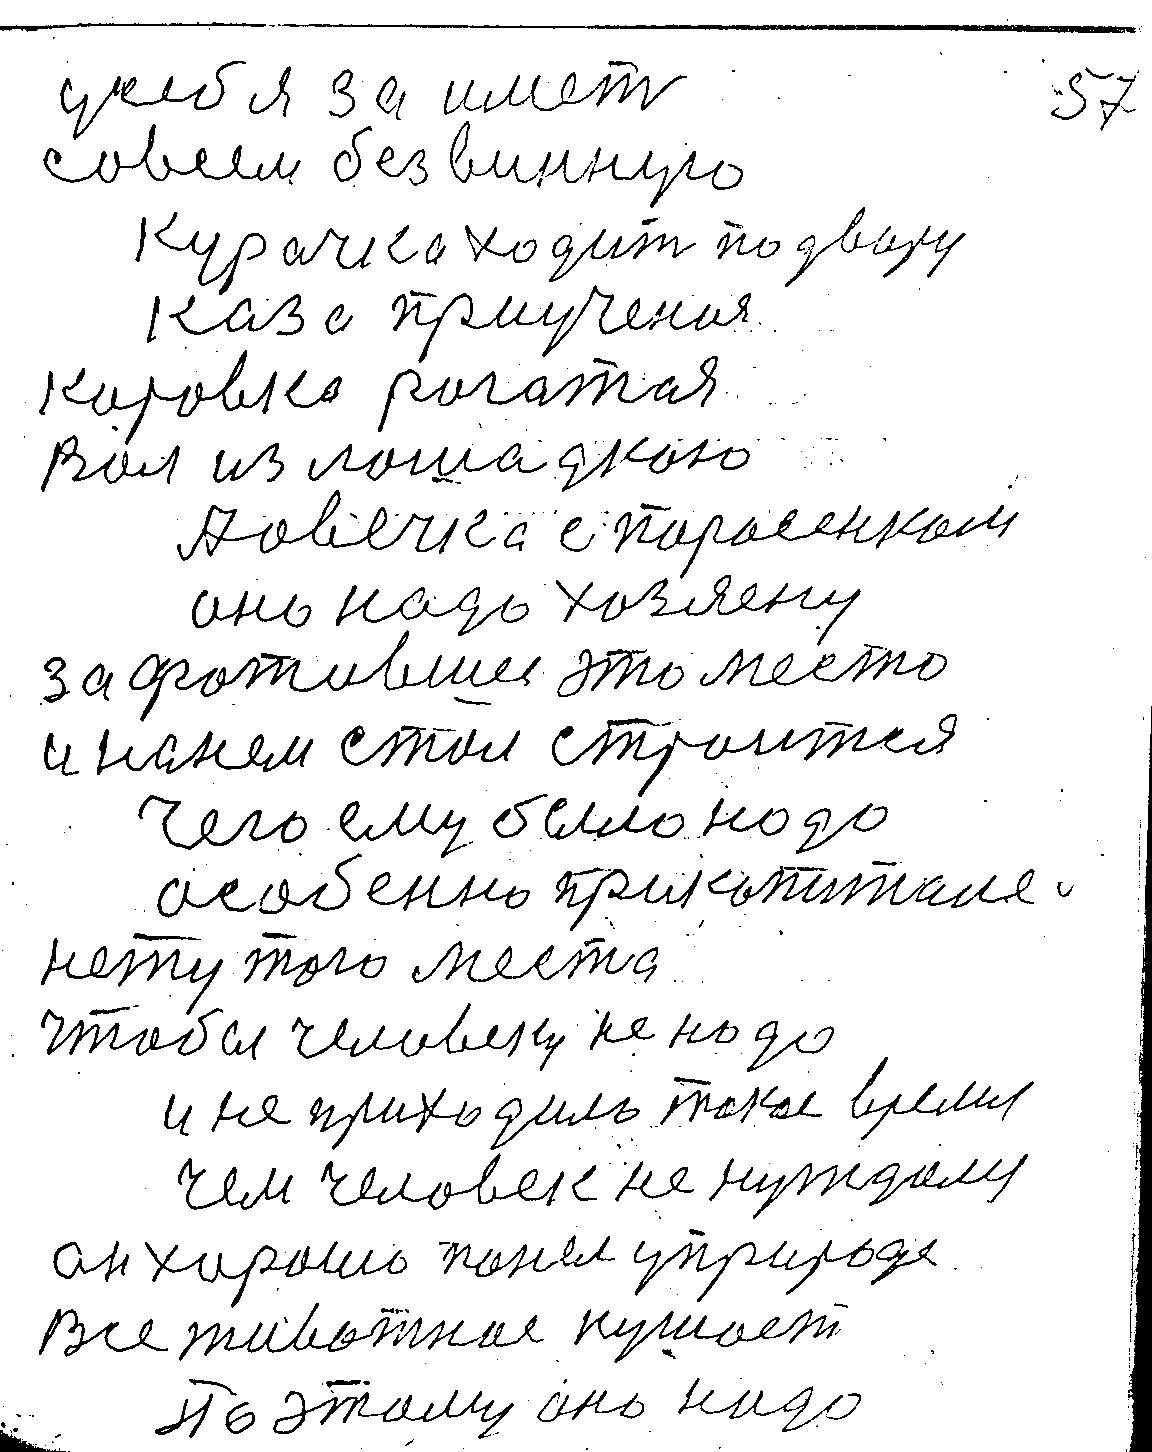 57
усебя за имет
совсем безвинную
Курачка ходит по двору
Каза приученая
коровка рогатая
Вол из лошадкою
Аовечка с поросенком
оно надо хозяену
зафотивши это место
и нанем стол строится
Чего ему было надо
особенно
нету того места
чтобы человеку не надо
и не приходило такое время
чем человек не нуждал
он хорошо понел уприроде
Все животное кушает
Поэтому оно надо